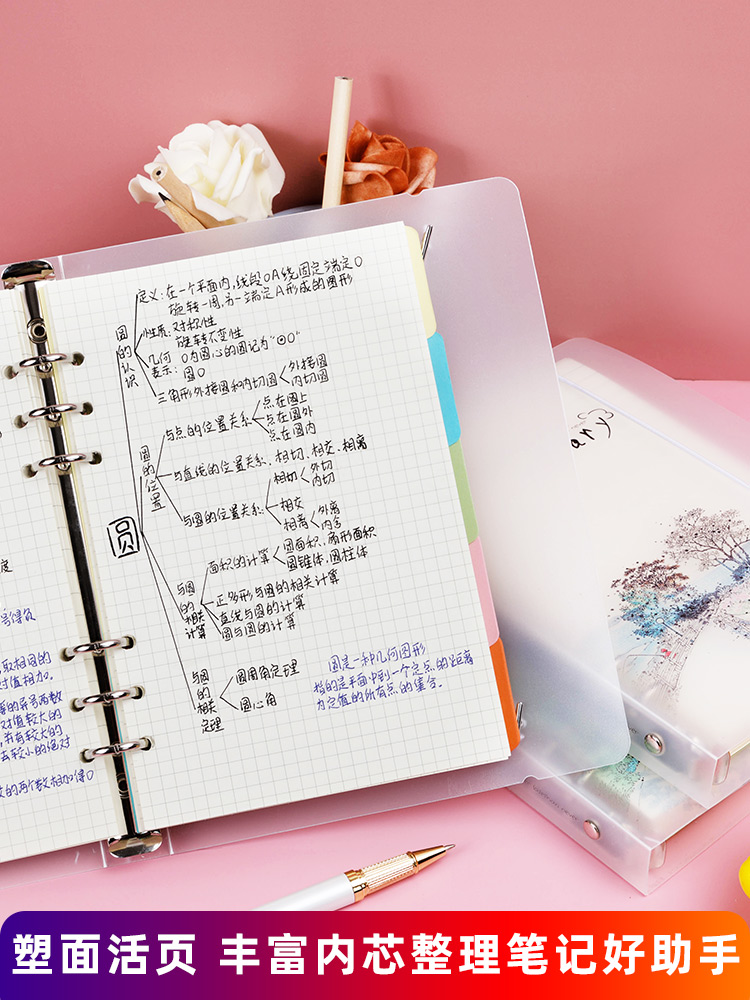 定义:在一个平面内,线段OA绕固定端定O
旋转一周,另一端定A形成的图形
圆的认识
性质:对称性
旋转不变性
几何 O为圆心的圆记为"⊙O"
表示:圆O
三角形外接圆和内切圆
外接圆
内切圆
圆
圆的位置
与点的位置关系
点在圆上
点在圆外
点在圆内
与直线的位置关系.相切、相交、相离
与圆的位置关系:
相切
外切
内切
相交
相离
外离
内含
与圆的相关计算
面积的计算
圆面积.扇形面积
圆锥体.圆柱体
正多形与圆的相关计算
直线与圆的计算
圆与圆的计算
与圆的相关定理
圆周角定理
圆心角
圆是一种几何图形
指的是平面中到一个定点的距离
为定值的所有点的集合.
度
号得负
取相同的
对值相加。
的异号两数
对值较大的
并有较大的
去较小的绝对
数的两个数相加得0
ary
塑面活页 丰富内芯整理笔记好助手